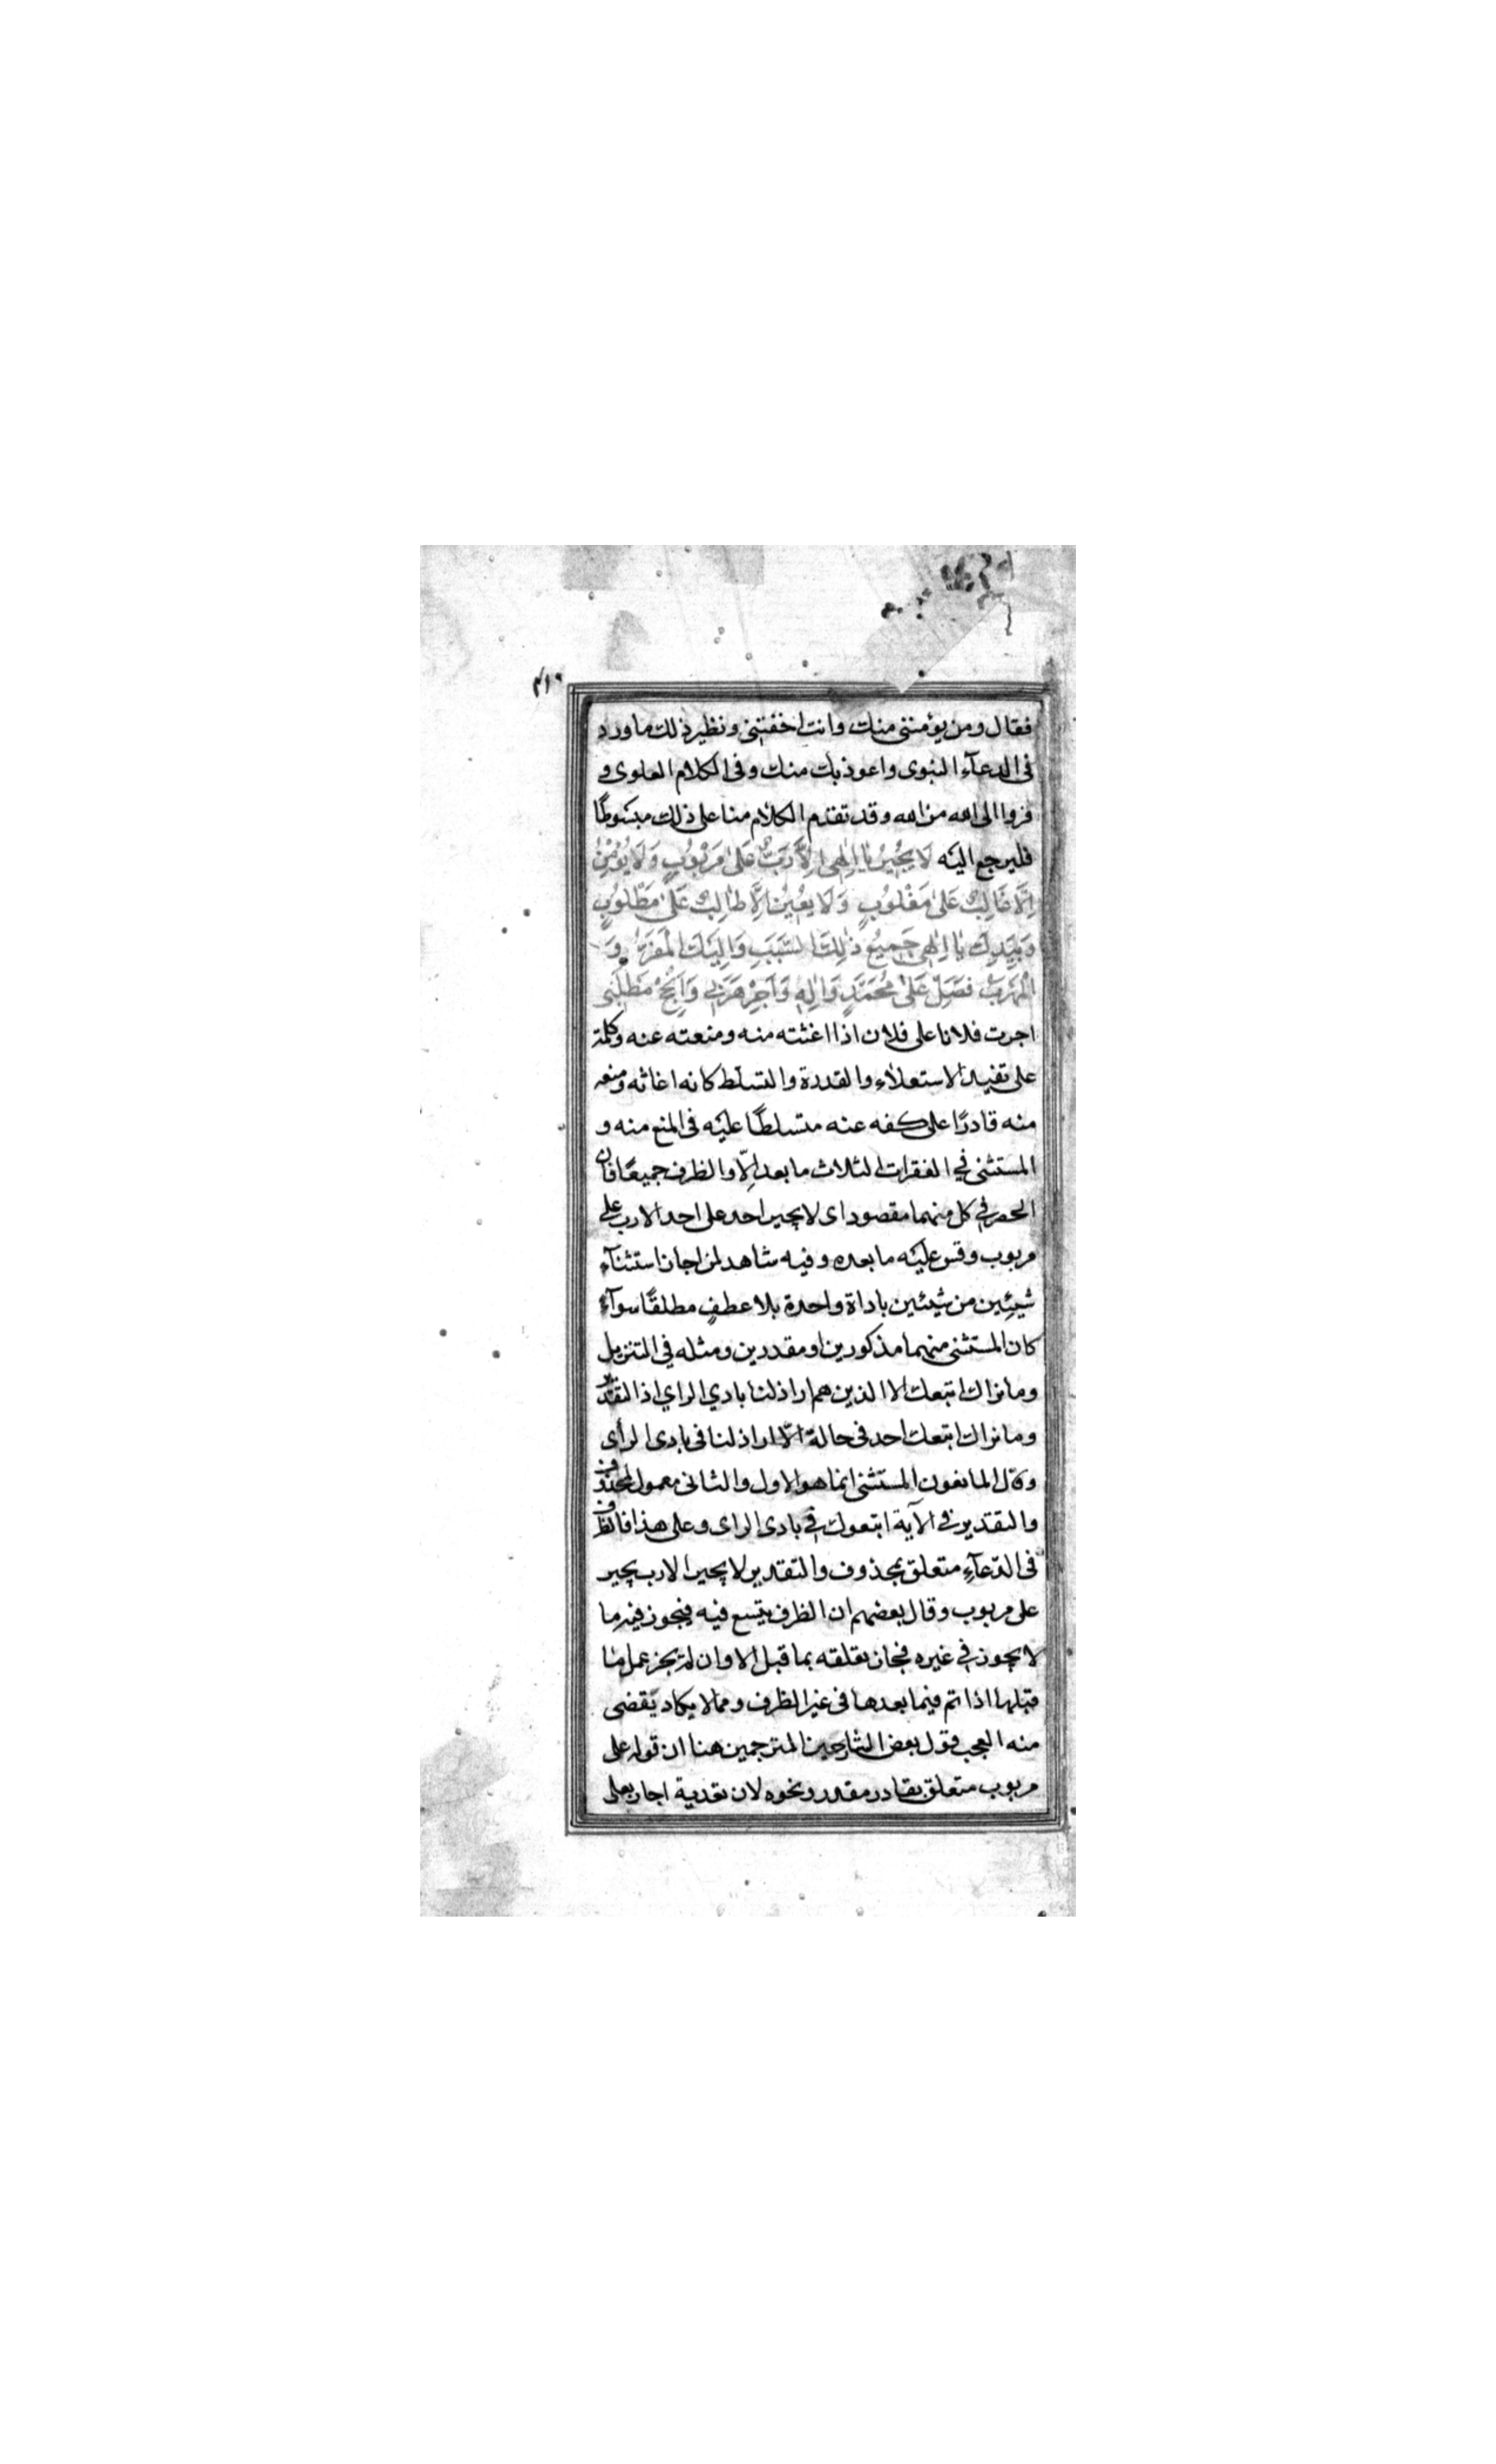 فقال ومن يؤمنني منك وانت اخفتني ونظير ذلك ما ورد
فى الدعآء النبوى واعوذ بك منك وفى الكلام العلوى و
فروا الى الله من الله وقد تقدم الكلام منا على ذلك مبسوطًا
فليرجع اليه لَا يُجِيْرُ يٰا اِلٰهِى اِلَّا رَبٌّ عَلٰى مَرْبُوْبٍ وَلَا يُؤْمِنُ
اِلَّا غَالِبٌ عَلٰى مَغْلُوْبٍ وَلَا يُعِيْنُ اِلَّا طٰالِبٌ عَلٰى مَطْلُوْبٍ
وَبِيَدِكَ يٰا اِلٰهِى جَمِيْعُ ذٰلِكَ السَّبَبِ وَاِلَيْكَ الْمَفَرُّ وَ
الْمَهْرَبُ فَصَلِّ عَلٰى مُحَمَّدٍ وَاٰلِهِ وَاَجِرْ هَرَبِى وَاَنْجِحْ مَطْلَبِى
اجرت فلانا على فلان اذا اغثته منه ومنعته عنه وكلمة
على تفيد الاستعلاء والقدرة والتسلط كانه اغاثه ومنعه
منه قادرًا على كفه عنه متسلطًا عليه فى المنع منه و
المستثنى فى الفقرات الثلاث ما بعد اِلّا والظرف جميعًا فان
الحصر فى كل منهما مقصود اى لا يجير احد على احد الا رب على
مربوب وقس عليه ما بعده وفيه شاهد لمن اجاز استثنآء
شيئين من شيئين باداة واحدة بلا عطفٍ مطلقًا سوآء
كان المستثنى منهما مذكورين او مقدرين ومثله فى التنزيل
وما نراك اتبعك الا الذين هم اراذلنا بادي الراي اذ التقدير
وما نراك اتبعك احد فى حالة اِلّا اراذلنا فى بادى الرأى
وقال المانعون المستثنى انما هو الاول والثانى معمول لمحذوف
والتقدير فى الآية اتبعوك فى بادى الراى وعلى هذا فالظرف
فى الدّعآءِ متعلق بمحذوف والتقدير لا يجير الا رب يجير
على مربوب وقال بعضهم ان الظرف يتسع فيه فيجوز فيه ما
لا يجوز فى غيره فجاز تعلقه بما قبل الا وان لم يجز عمل ما
قبلها اذا تم فيما بعدها فى غير الظرف ومما لا يكاد يقضى
منه العجب قول بعض الشارحين المترجمين هنا ان قوله على
مربوب متعلق بقادر مقدر ونحوه لان تعدية اجار بعلى